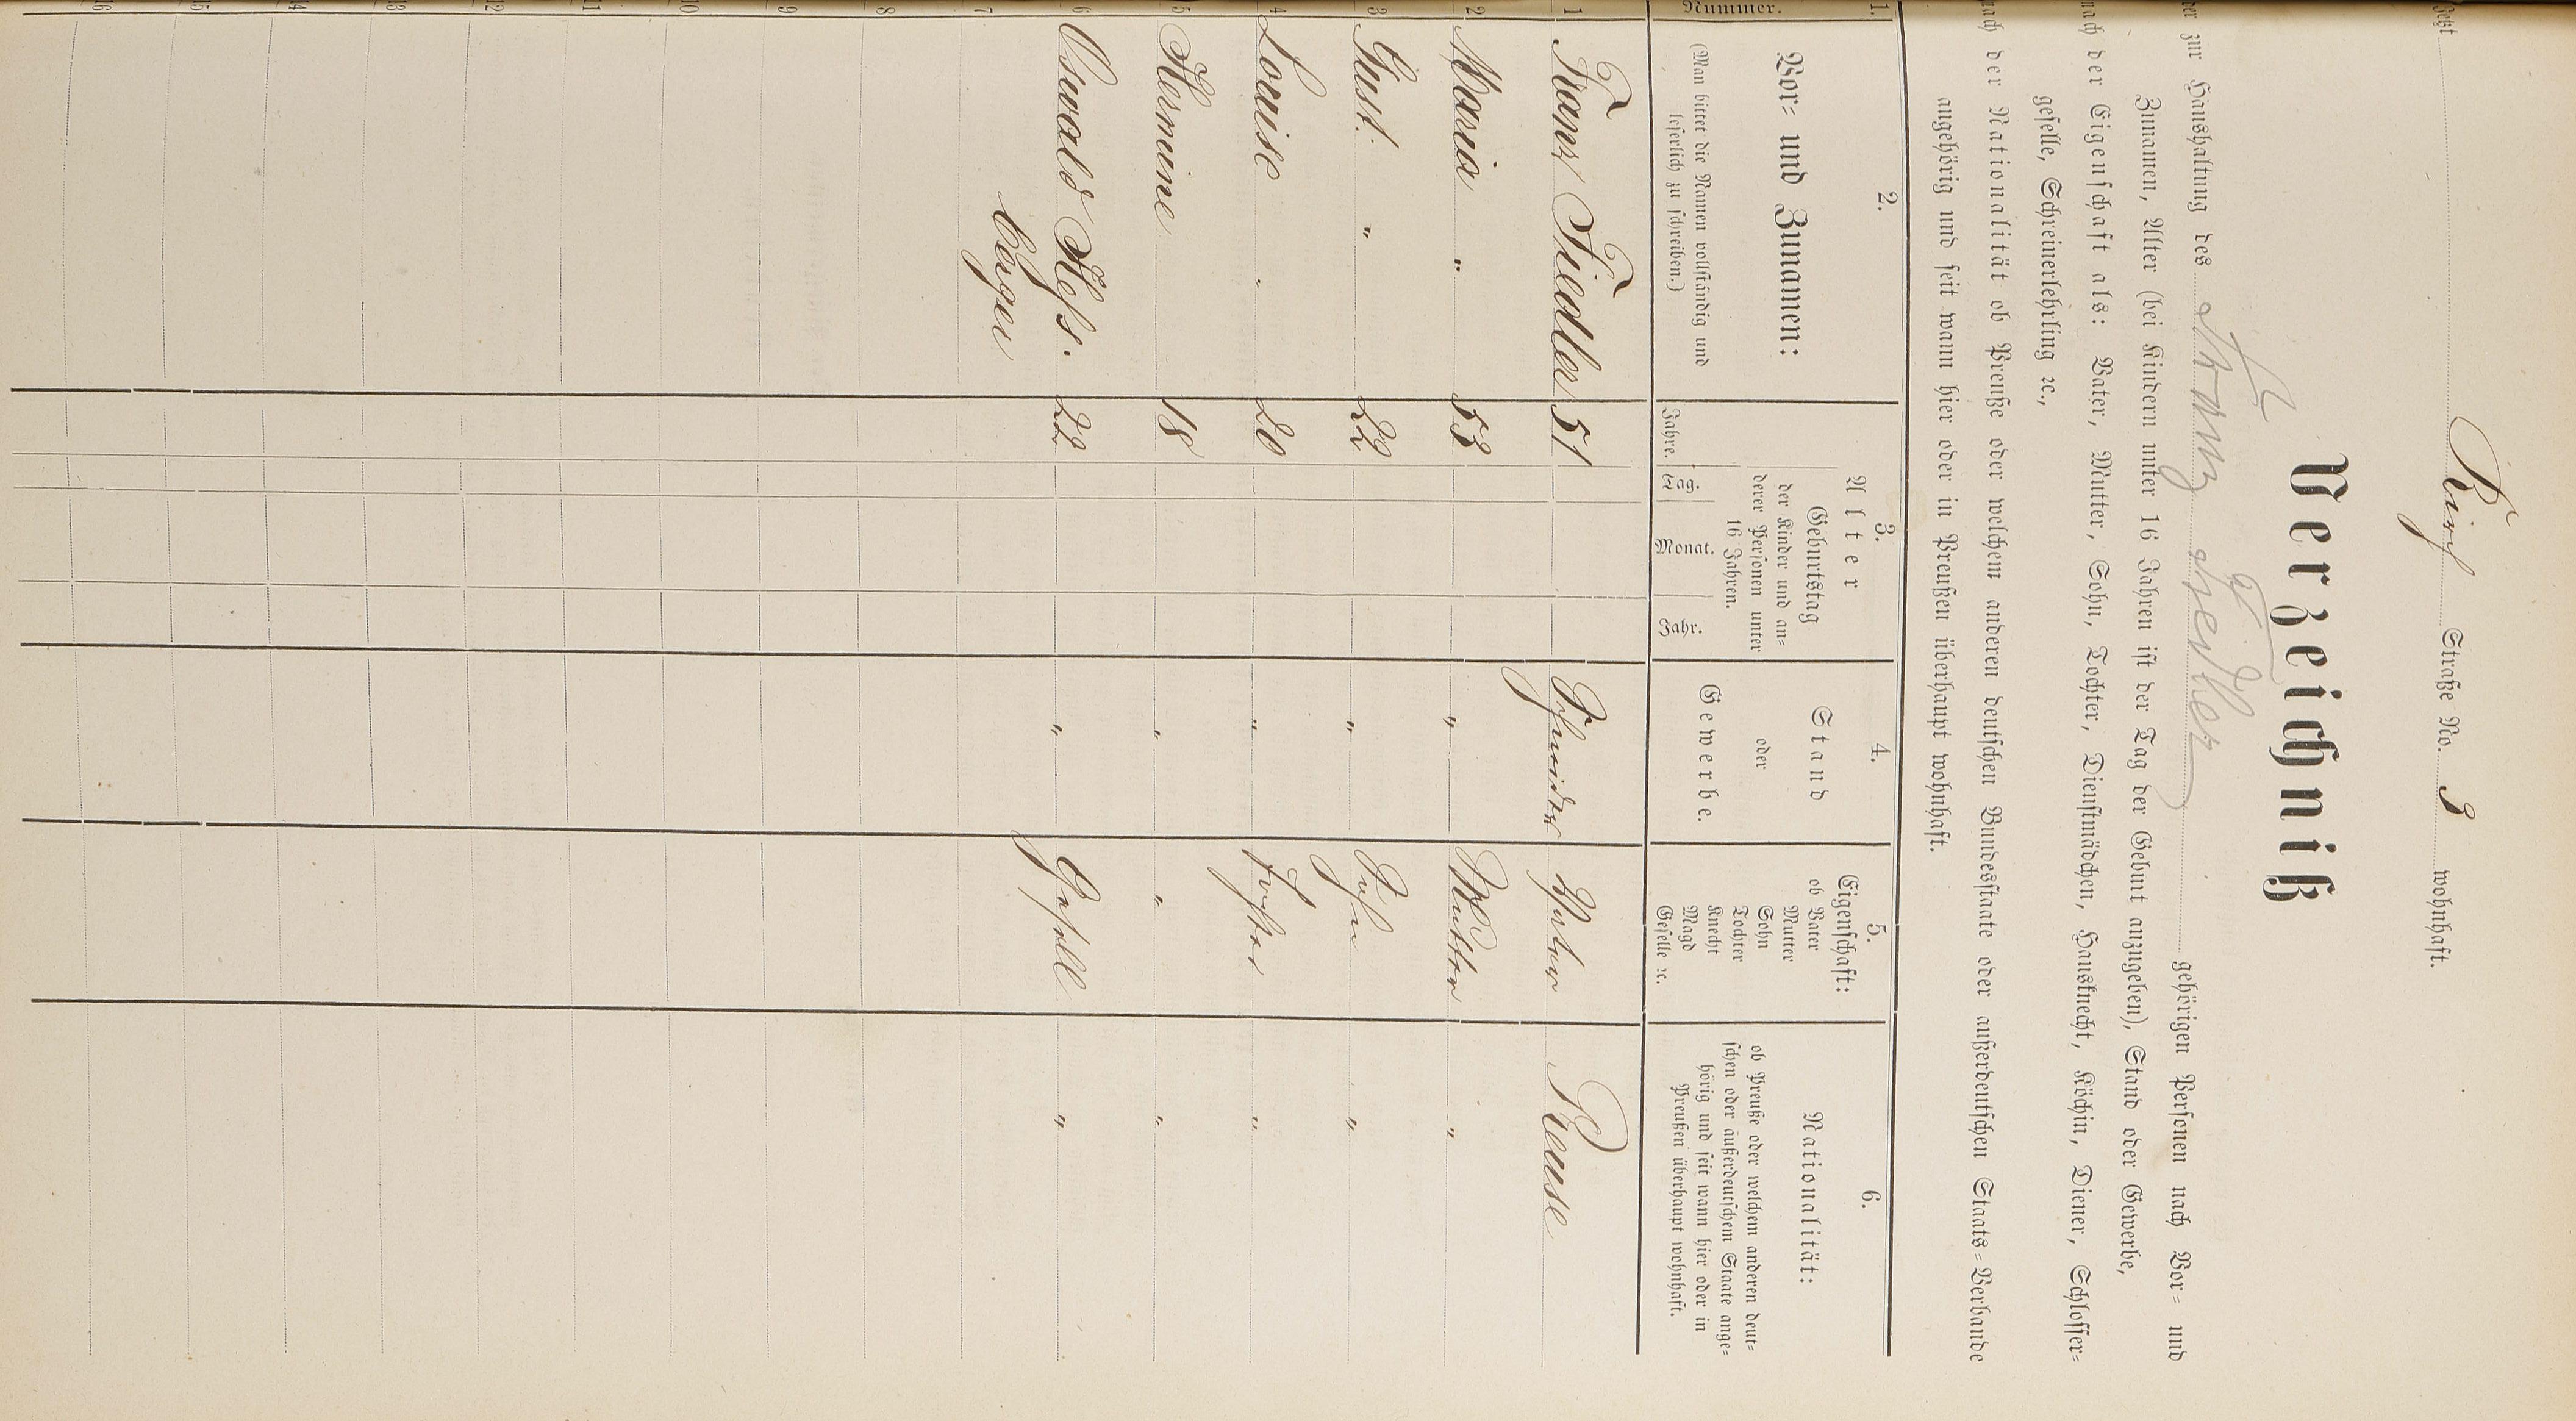 Jetzt Kirch Straße No. 3 wohnhaft.
Verzeichniß
der zur Haushaltung des Franz Fiedler gehörigen Personen nach Vor- und
Zunamen, Alter (bei Kindern unter 16 Jahren ist der Tag der Geburt anzugeben), Stand oder Gewerbe,
nach der Eigenschaft als: Vater, Mutter, Sohn, Tochter, Dienstmädchen, Hausknecht, Köchin, Diener, Schlosser-
geselle, Schreinerlehrling ꝛc.,
nach der Nationalität ob Preuße oder welchem anderen deutschen Bundesstaate oder außerdeutschen Staats-Verbande
angehörig und seit wann hier oder in Preußen überhaupt wohnhaft.
1. 2. 3. 4. 5. 6.
Nummer.
Vor- und Zunamen:
(Man bittet die Namen vollständig und
leserlich zu schreiben.)
Alter
Geburtstag
der Kinder und an-
derer Personen unter
16 Jahren.
Jahre. Tag. Monat. Jahr.
Stand
oder
Gewerbe.
Eigenschaft:
ob Vater
Mutter
Sohn
Tochter
Knecht
Magd
Geselle ꝛc.
Nationalität:
ob Preuße oder welchem anderen deut-
schen oder außerdeutschem Staate ange-
hörig und seit wann hier oder in
Preußen überhaupt wohnhaft.
1 Franz Fiedler 51 Schneider Vater Preuse
2 Maria " 53 " Mutter "
3 Gust. " 22 " Sohn "
4 Louise " 20 " Tochter "
5 Hermine 18 " " "
6 Oswald Hefs. 22 " Gesell "
7 berger
8
9
10
11
12
13
14
15
16